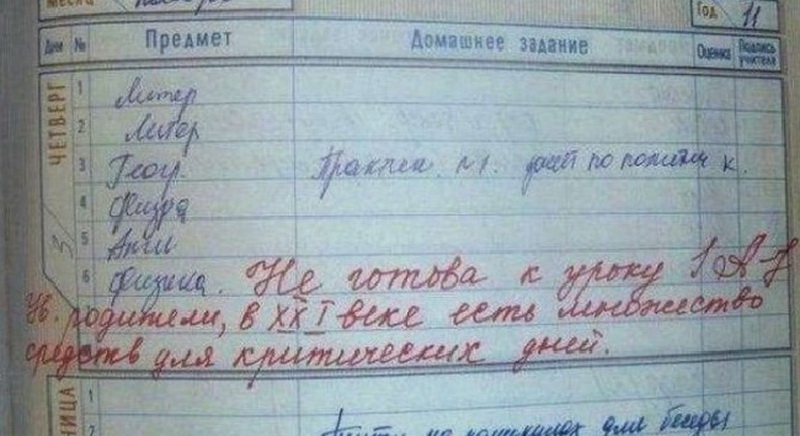 Месяц
Год 11
Дни № Предмет Домашнее задание Оценка Подпись учителя
ЧЕТВЕРГ
1 Литер
2 Литер
3 Геогр. Практич. по политич к.
4 Физра
5 Англ
6 Физика. Не готова к уроку
Ув. родители, в XXI веке есть множество
средств для критических дней.
НИЦА
1
2 для беседы